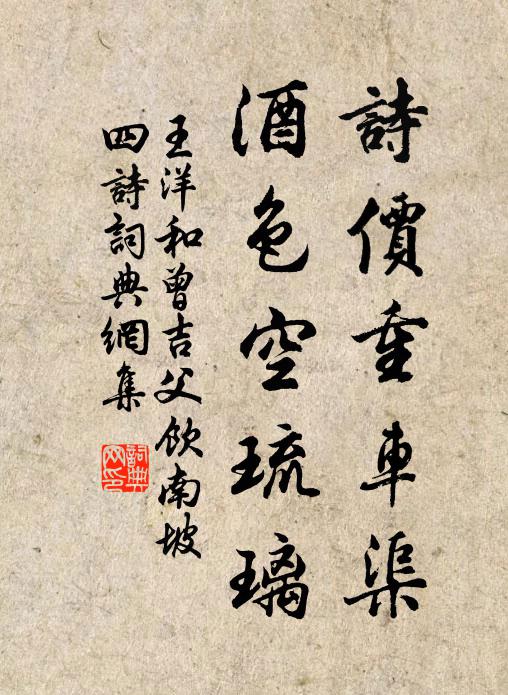 詩價重車渠
酒色空琉璃
王洋和曾吉父飲南坡
四詩詞典網集
詞典网印